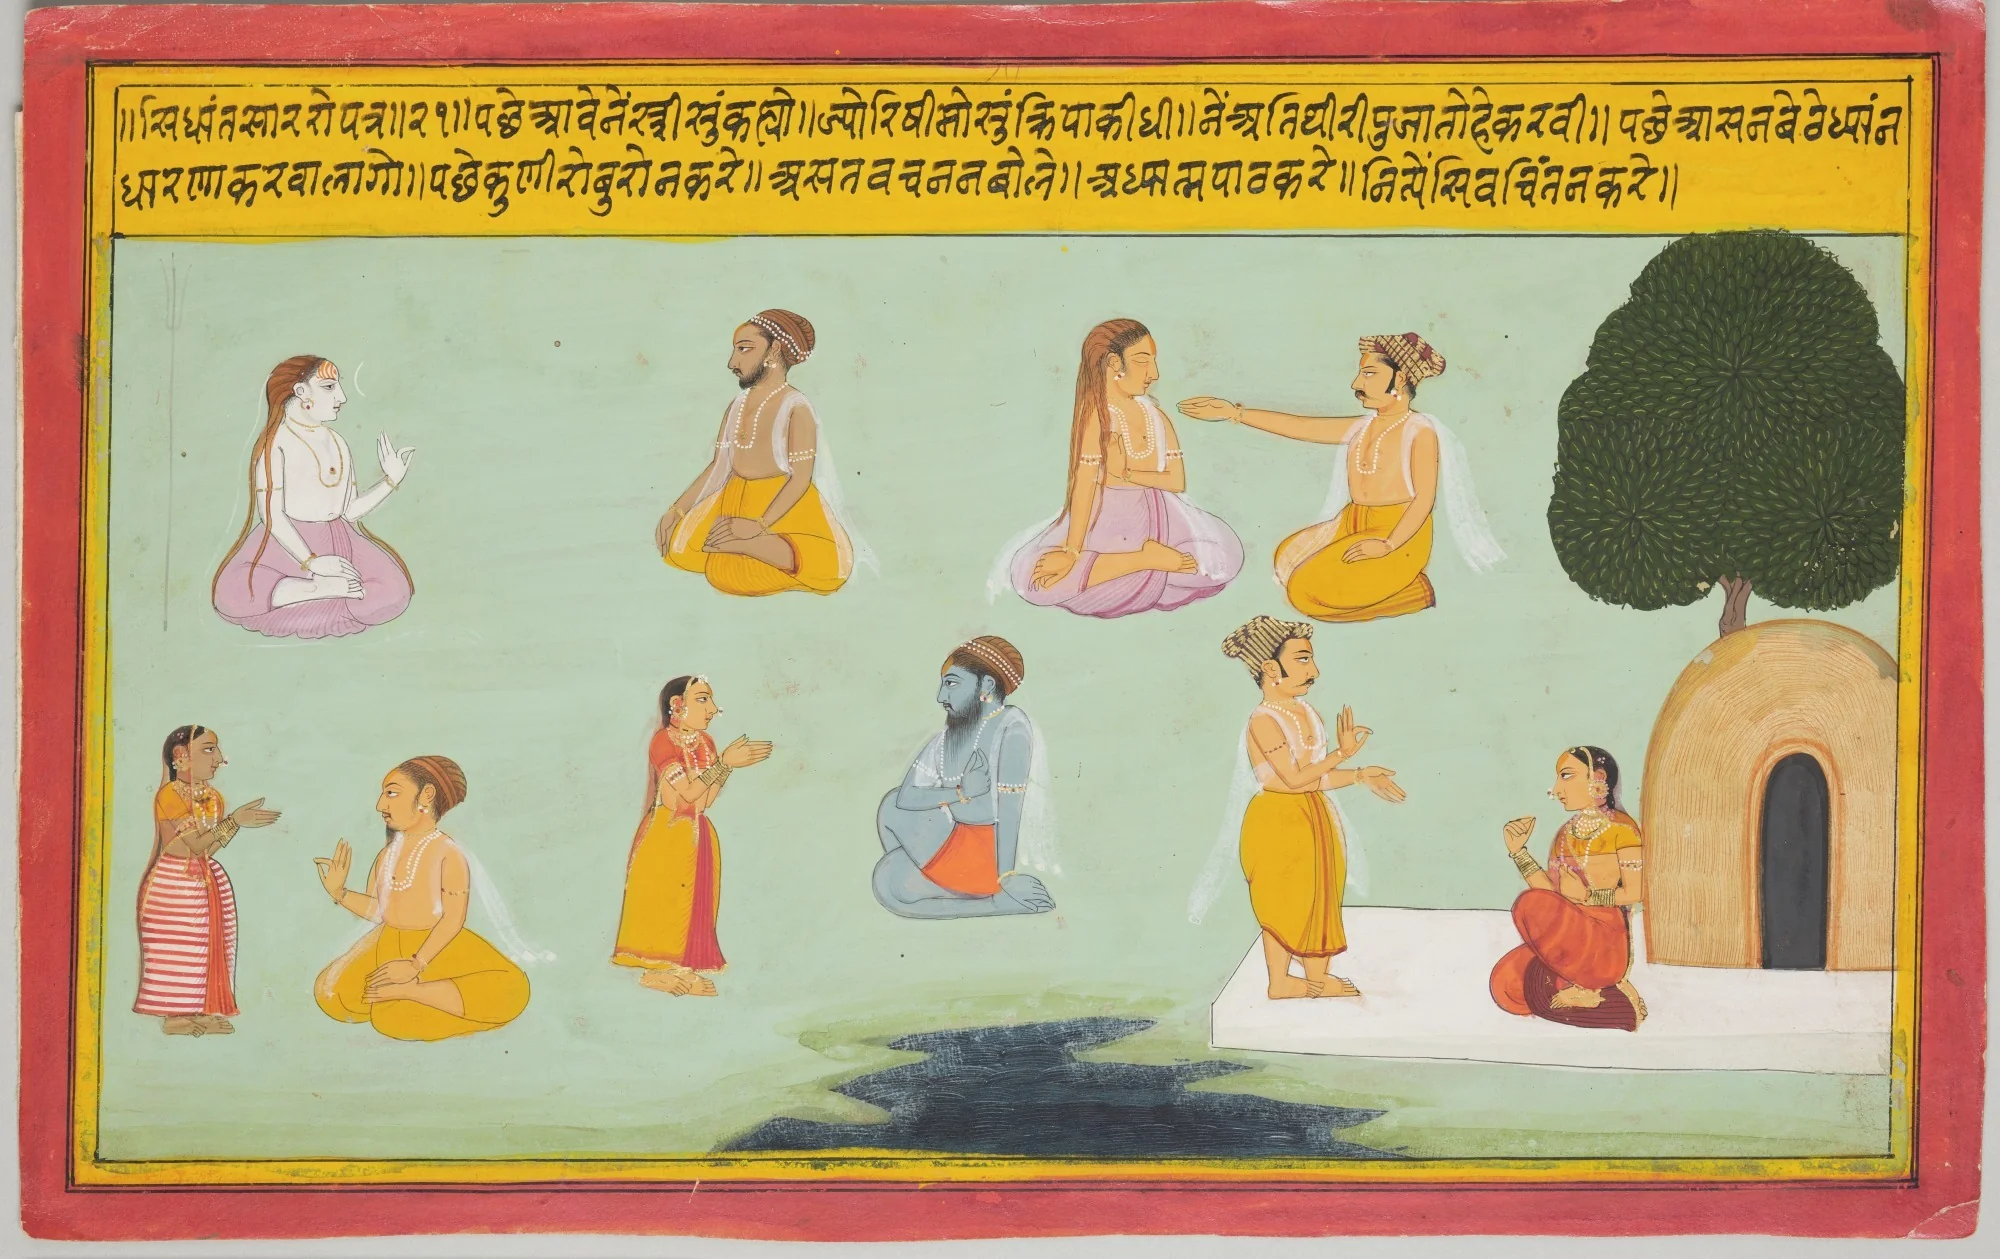 ॥सिध्यांतसाररोपत्र॥२१॥पछेआवेनेंस्त्रीस्युंकह्यो॥ज्योरिषीमोस्युंक्रिपाकीधी॥नेंअतिथीरीपुजातोहेकरवी॥पछेआसनबेठेध्यांन
धारणाकरवालागो॥पछेकुणीरोबुरोनकरे॥असतवचननबोले॥अध्यात्मपाठकरे॥नित्येंसिवचिंतनकरे॥